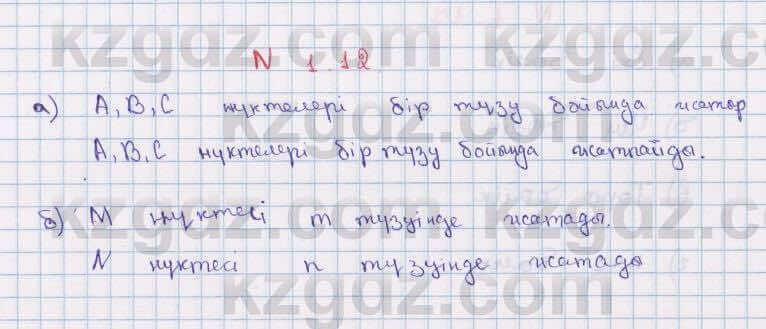 N 1.12.
а) А, В, С нүктелері бір түзу бойында жатыр
А, В, С нүктелері бір түзу бойында жатпайды.
б) М нүктесі m түзуінде жатады.
N нүктесі n түзуінде жатады
kzgdz.com
kzgdz.com
kzgdz.com
kzgdz.com